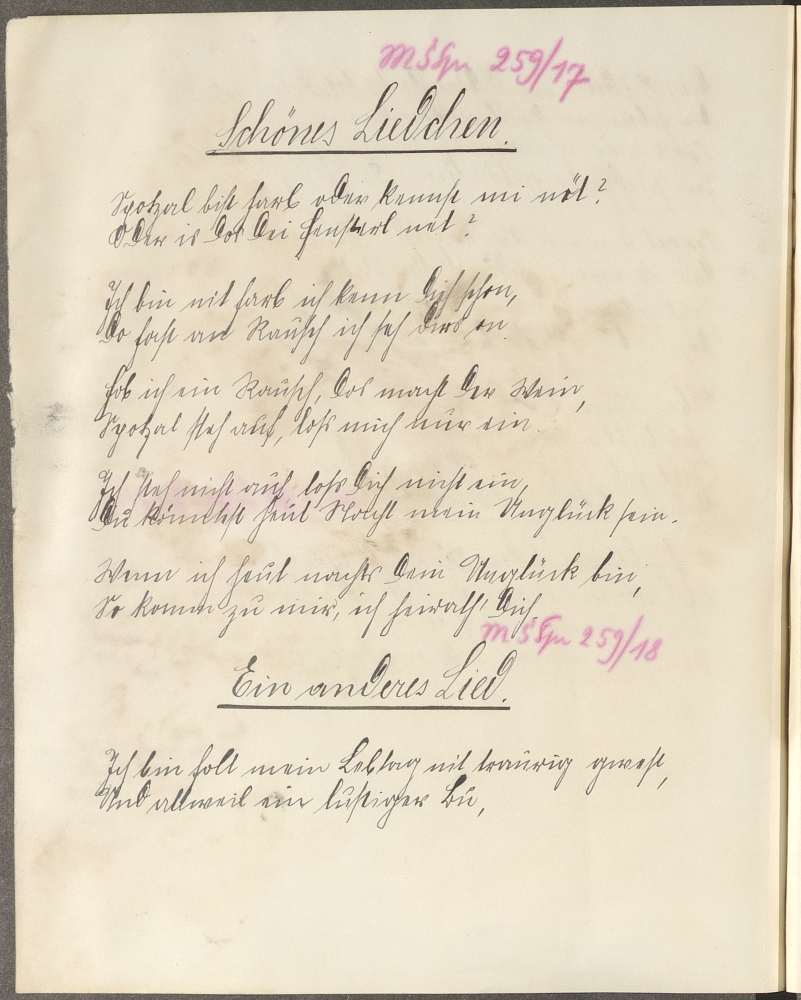 MSSgn 259/17
Schönes Liedchen.
Spotzal bist harb oder kennst mi nöt?
Oder is dos dei Fensterl net?
Ich bin nit harb ich kenn Dich schon,
Do host an Rausch ich seh dirs on.
Hob ich ein Rausch, dos macht der Wein,
Spotzal steh auf, loß mich nur ein.
Ich steh nicht auf, loß Dich nicht ein,
Du könntest heut Nacht mein Unglück sein.
Wenn ich heut nachts Dein Unglück bin,
So komm zu mir, ich heirath' Dich
MSSgn 259/18
Ein anderes Lied.
Ich bin holt mein Lebtag nit traurig gwest,
Und allweil ein lustiger Bu,